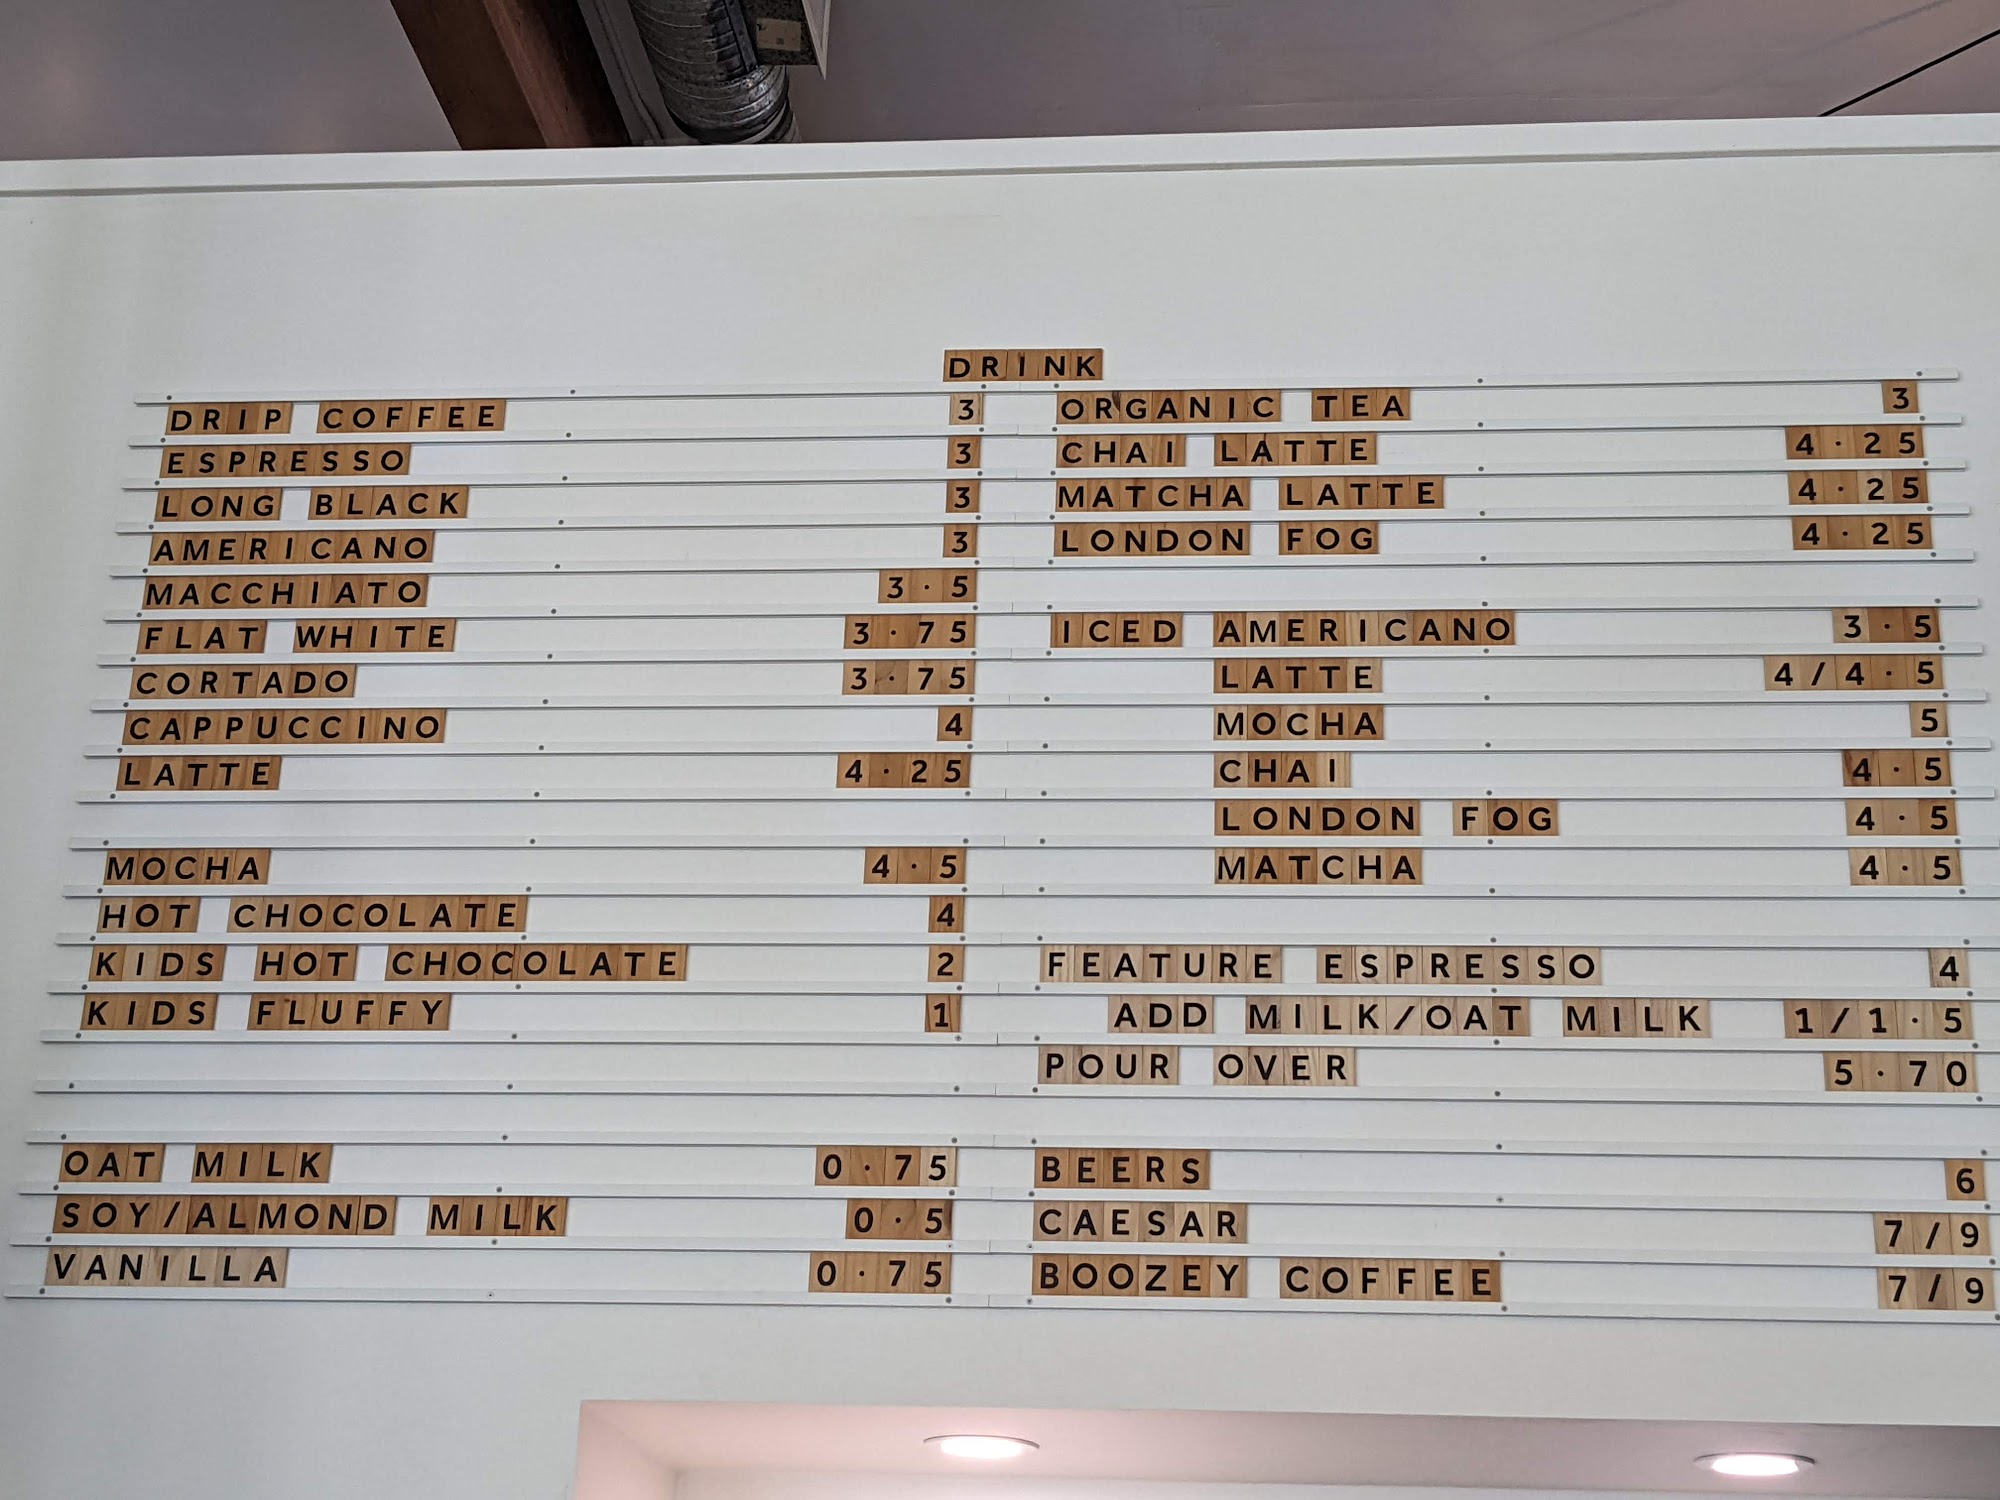 DRINK
DRIP COFFEE 3
ESPRESSO 3
LONG BLACK 3
AMERICANO 3
MACCHIATO 3·5
FLAT WHITE 3·75
CORTADO 3·75
CAPPUCCINO 4
LATTE 4·25
MOCHA 4·5
HOT CHOCOLATE 4
KIDS HOT CHOCOLATE 2
KIDS FLUFFY 1
OAT MILK 0·75
SOY/ALMOND MILK 0·5
VANILLA 0·75
ORGANIC TEA 3
CHAI LATTE 4·25
MATCHA LATTE 4·25
LONDON FOG 4·25
ICED AMERICANO 3·5
LATTE 4/4·5
MOCHA 5
CHAI 4·5
LONDON FOG 4·5
MATCHA 4·5
FEATURE ESPRESSO 4
ADD MILK/OAT MILK 1/1·5
POUR OVER 5·70
BEERS 6
CAESAR 7/9
BOOZEY COFFEE 7/9